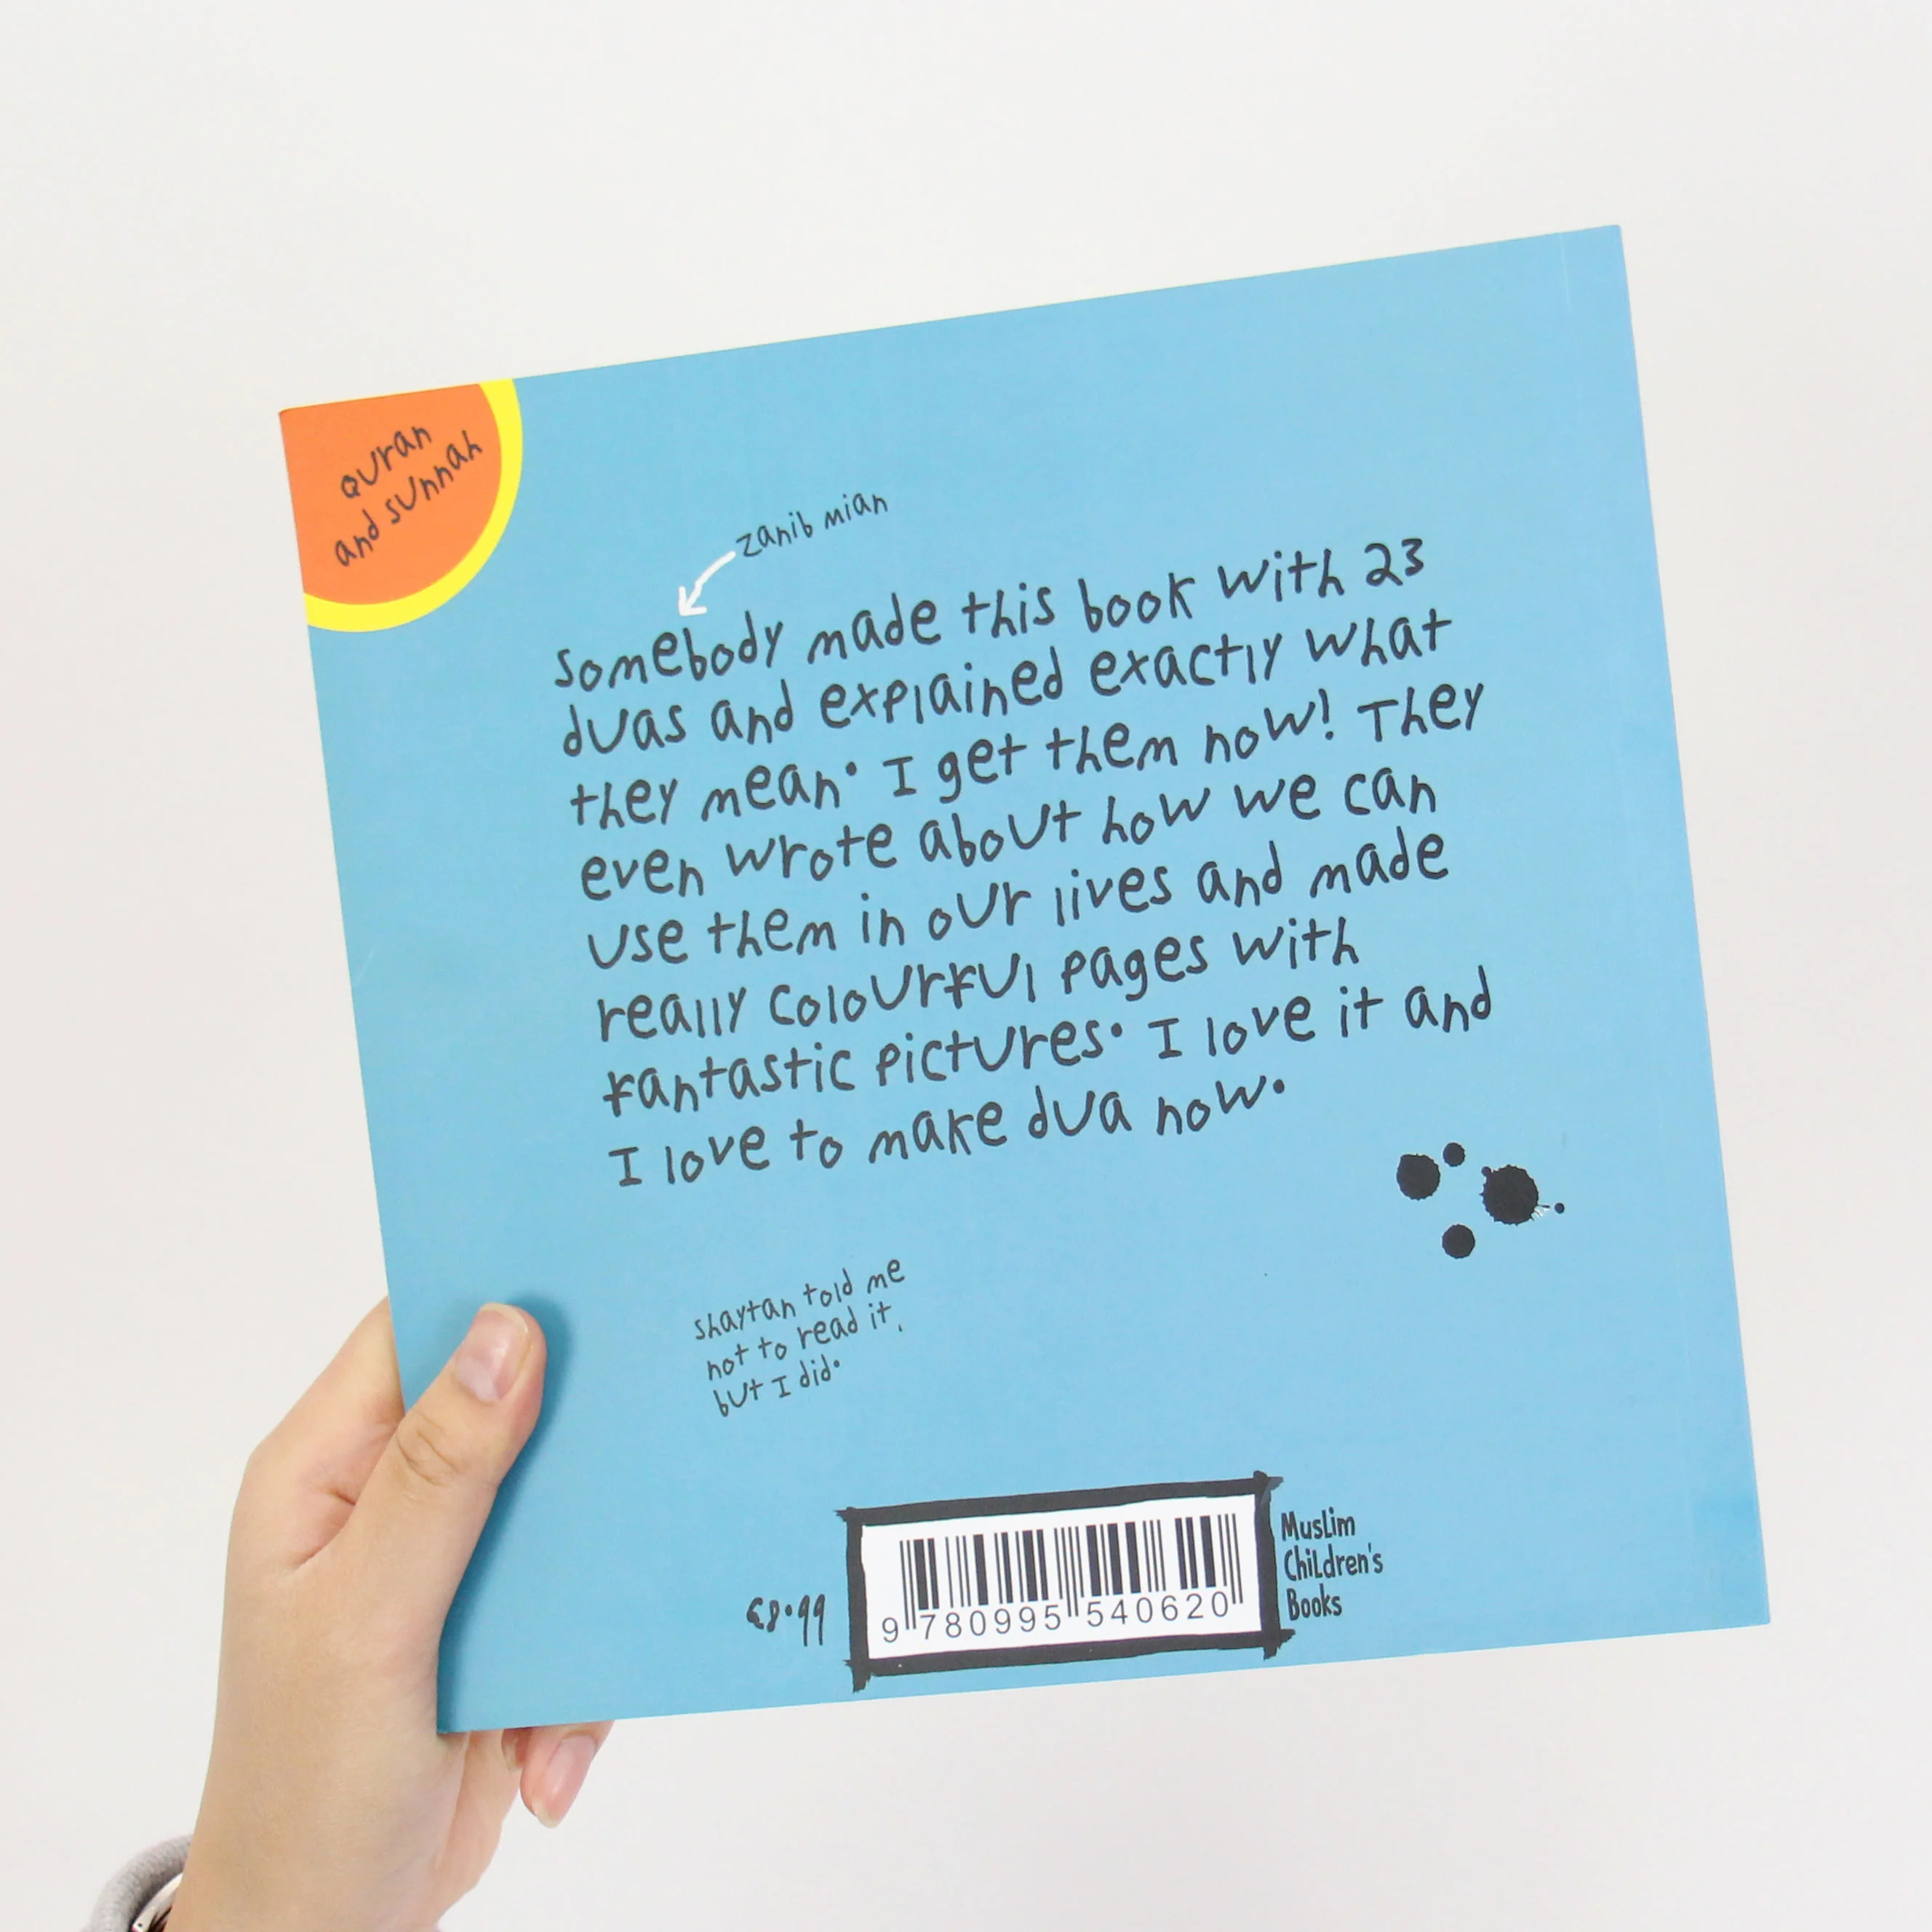 Quran
and sunnah
zanib mian
somebody made this book with 23
duas and explained exactly what
they mean. I get them now! They
even wrote about how we can
use them in our lives and made
really colourful pages with
fantastic pictures. I love it and
I love to make dua now.
shaytan told me
not to read it,
but I did.
£8.99
9 780995 540620
Muslim
Children's
Books